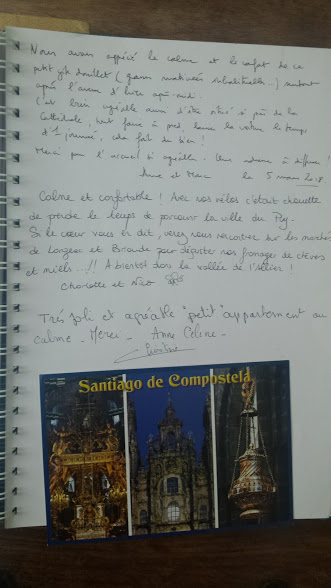 Nous avons apprécié le calme et le confort de ce
petit gîte douillet ( grasses matinées ) surtout
après l'avion d'hier après-midi.
C'est bien agréable aussi d'être situé si près de la
Cathédrale, tout faire à pied, laisser la voiture le temps
d'1 journée, cela fait du bien !
Merci pour l'accueil si agréable. Une adresse à diffuser !
Anne et Marc le 5 mars 2018.
Calme et confortable ! Avec nos vélos c'était chouette
de prendre le temps de parcourir la ville du Puy.
Si le coeur vous en dit, venez nous rencontrer sur les marchés
de Langeac et Brioude pour déguster nos fromages de chèvres
et miels...!! A bientôt dans la vallée de l'Allier !
Charlotte et Nico
Très joli et agréable "petit" appartement au
calme - Merci - Anne Céline -
Santiago de Compostela